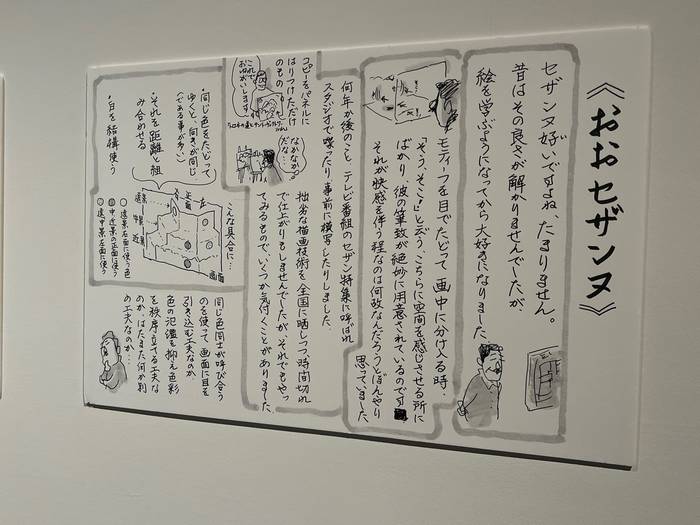 《おおセザンヌ》
セザンヌ好いですよね、たまりません。
昔はその良さが解かりませんでしたが、
絵を学ぶようになってから大好きになりました
モティーフを目でたどって画中に分け入る時・
「そう、そこ!」と云う、こちらに空間を感じさせる所に
ばかり、彼の筆致が絶妙に用意されているのです
それが快感を伴う程なのは何故なんだろうとぼんやり
思っていました
何年か後のこと、テレビ番組のセザンヌ特集に呼ばれ
スタジオで喋ったり、事前に模写したりしました。
コピーをパネルに
はりつけただけ
のもの
これで
おねがいします
なかなか
だな…
拙劣な描画技術を全国に晒しつつ、時間切れ
で仕上がりもしませんでしたが、それでもやっ
てみるもので、いくつか気付くことがありました
・同じ色をたどって
ゆくと、向きが同じ
(である事が多い)
・それを距離と組
み合わせる
・白を結構使う
こんな具合に…
右
正面
左
遠景
中景
近景
画面
遠景左面に使う色
中・近景の正面に使う
遠・中景左面に使う
同じ色同士が呼び合う
のを使って画面に目を
引き込む工夫なのか、
色の氾濫を抑え色彩
を秩序立てる工夫な
のか、はたまた何か別
の工夫なのか…